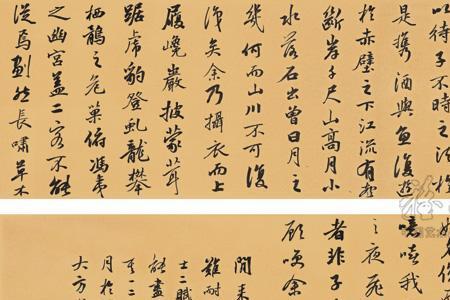 以待子不時之須於
是攜酒與魚復遊
於赤壁之下江流有聲
斷岸千尺山高月小
水落石出曾日月之
幾何而山川不可復
識矣余乃攝衣而上
履巉巖披蒙茸
踞虎豹登虬龍攀
栖鶻之危巢俯馮夷
之幽宮蓋二客不能
從焉劃然長嘯草木
噫嘻我
之夜飛
者非子
顧笑余
閒来
雖耐
士二賦
能盡
二
月於
大方